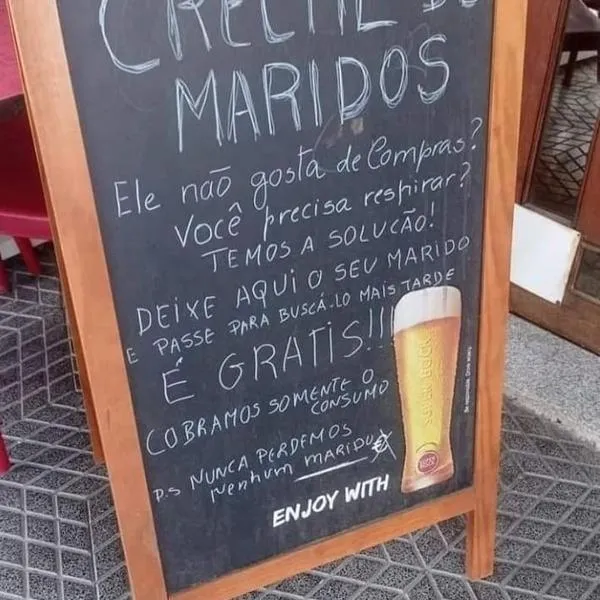 CRECHE DE
MARIDOS
Ele não gosta de Compras?
Você precisa respirar?
TEMOS A SOLUCÃO!
DEIXE AQUI O SEU MARIDO
E PASSE PARA BUSCÁ-LO MAIS TARDE
É GRATIS!!!
COBRAMOS SOMENTE O
CONSUMO
P.S NUNCA PERDEMOS
Nenhum MARIDO
ENJOY WITH
SUPER BOCK
Be responsible. Drink wisely.